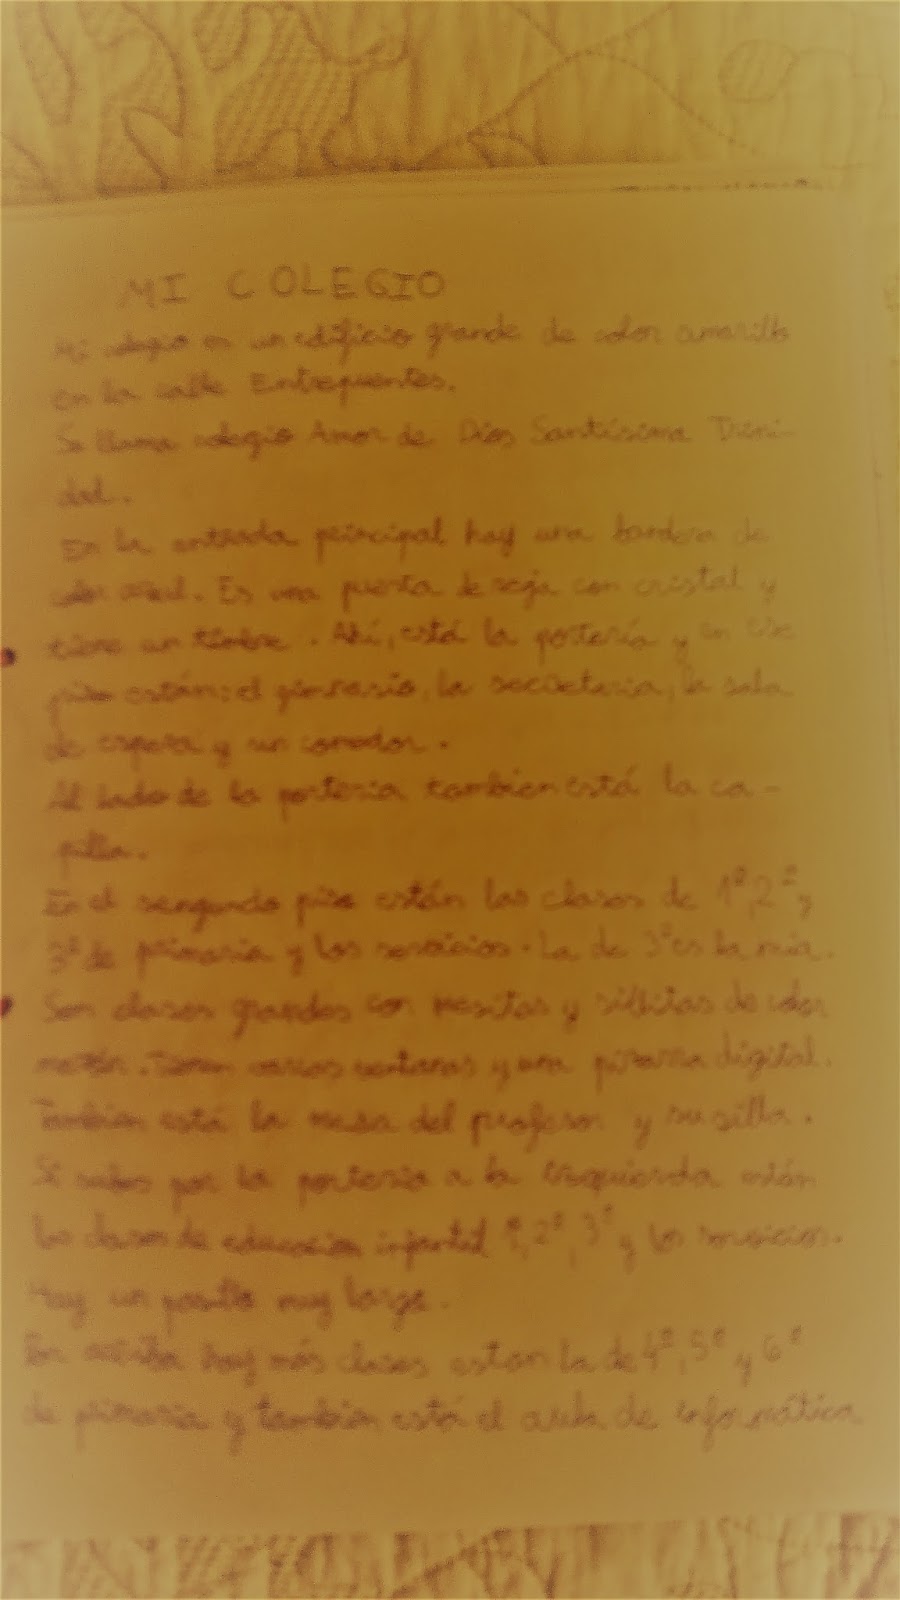 MI COLEGIO
Mi colegio es un edificio grande de color amarillo
en la calle Entrepuentes.
Se llama colegio Amor de Dios Santísima Trini-
dad.
En la entrada principal hay una bandera de
color azul. Es una puerta de reja con cristal y
tiene un timbre. Ahí, está la portería y en ese
piso están: el gimnasio, la secretaria, la sala
de espera y un comedor.
Al lado de la porteria tambien está la ca-
pilla.
En el sengundo piso están las clases de 1º, 2º y
3º de primaria y los servicios. La de 3º es la mia.
Son clases grandes con mesitas y sillitas de color
marrón. Tienen varias ventanas y una pizarra digital.
Tambien está la mesa del profesor y su silla.
Si subes por la porteria a la izquierda están
las clases de educación infantil 1º, 2º, 3º y los servicios.
Hay un pasillo muy largo.
En arriba hay más clases estan la de 4º, 5º y 6º
de primaria y tambien está el aula de informática